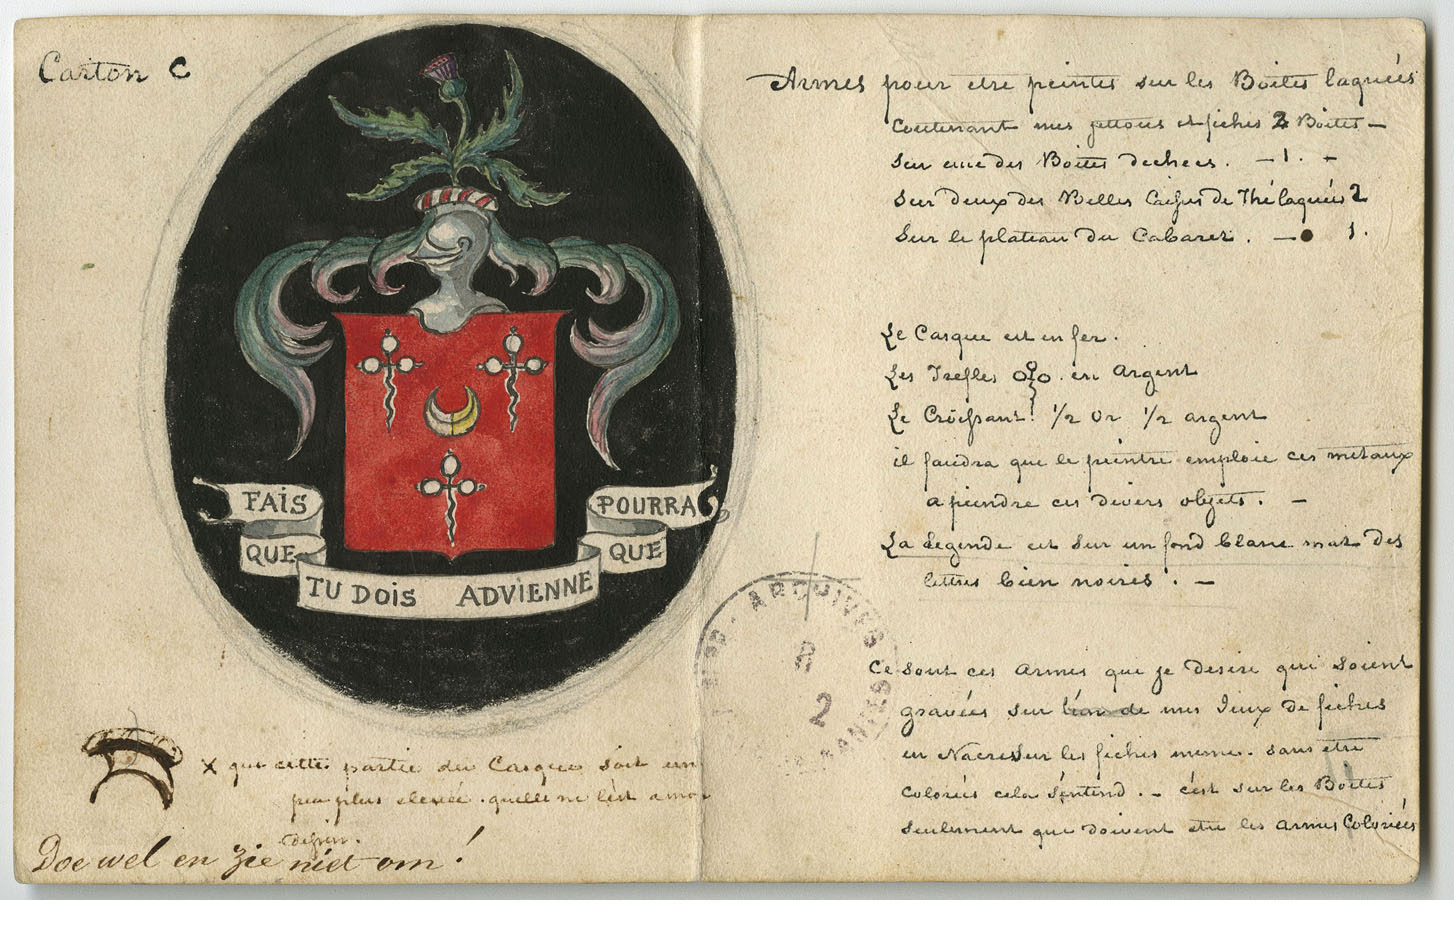 Carton C
FAIS
QUE
TU DOIS ADVIENNE
POURRA
QUE
X que cette partie du Casque soit un
peu plus elevée. quelle ne l'est a mon
dessin.
Doe wel en zie niet om!
Armes pour etre peintes sur les Boites laquées
Contenant mes jettons et fiches 2 Boites —
Sur une des Boites — 1. —
Sur deux des Belles Caisses de Thé laquées 2
Sur le plateau du Cabaret. — 1.
Le Casque est en fer.
Les Trefles en Argent
Le Croissant. 1/2 or 1/2 argent
il faudra que le peintre emploie ces metaux
a peindre ces divers objets. —
La Legende est sur un fond blanc mat des
lettres bien noires. —
ARCHIVES
2
Ce sont ces Armes que je desire qui soient
gravées sur mes Jeux de fiches
en Nacre sur les fiches meme. sans etre
Coloriés cela s'entend. — c'est sur les Boites
seulement que doivent etre les Armes Coloriées